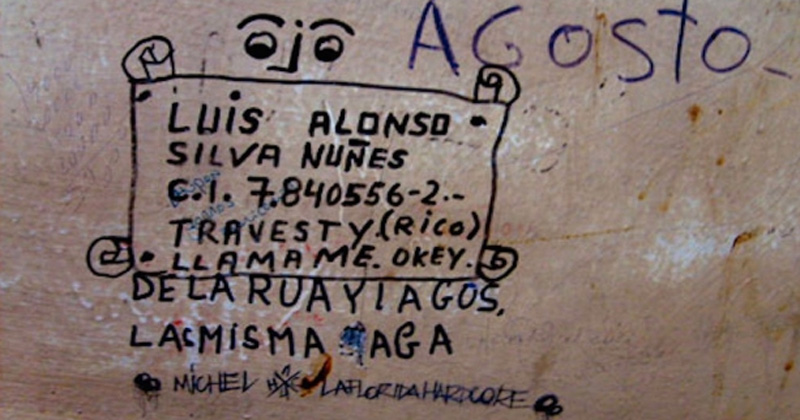 ojo AGOSTO
LUIS ALONSO
SILVA NUÑES
C.I. 7.840556-2.-
TRAVESTY.(RICO)
LLAMAME. OKEY.
DE LA RUA Y LAGOS,
LA MISMA AGA
MICHEL LAFLORIDAHARDCORE